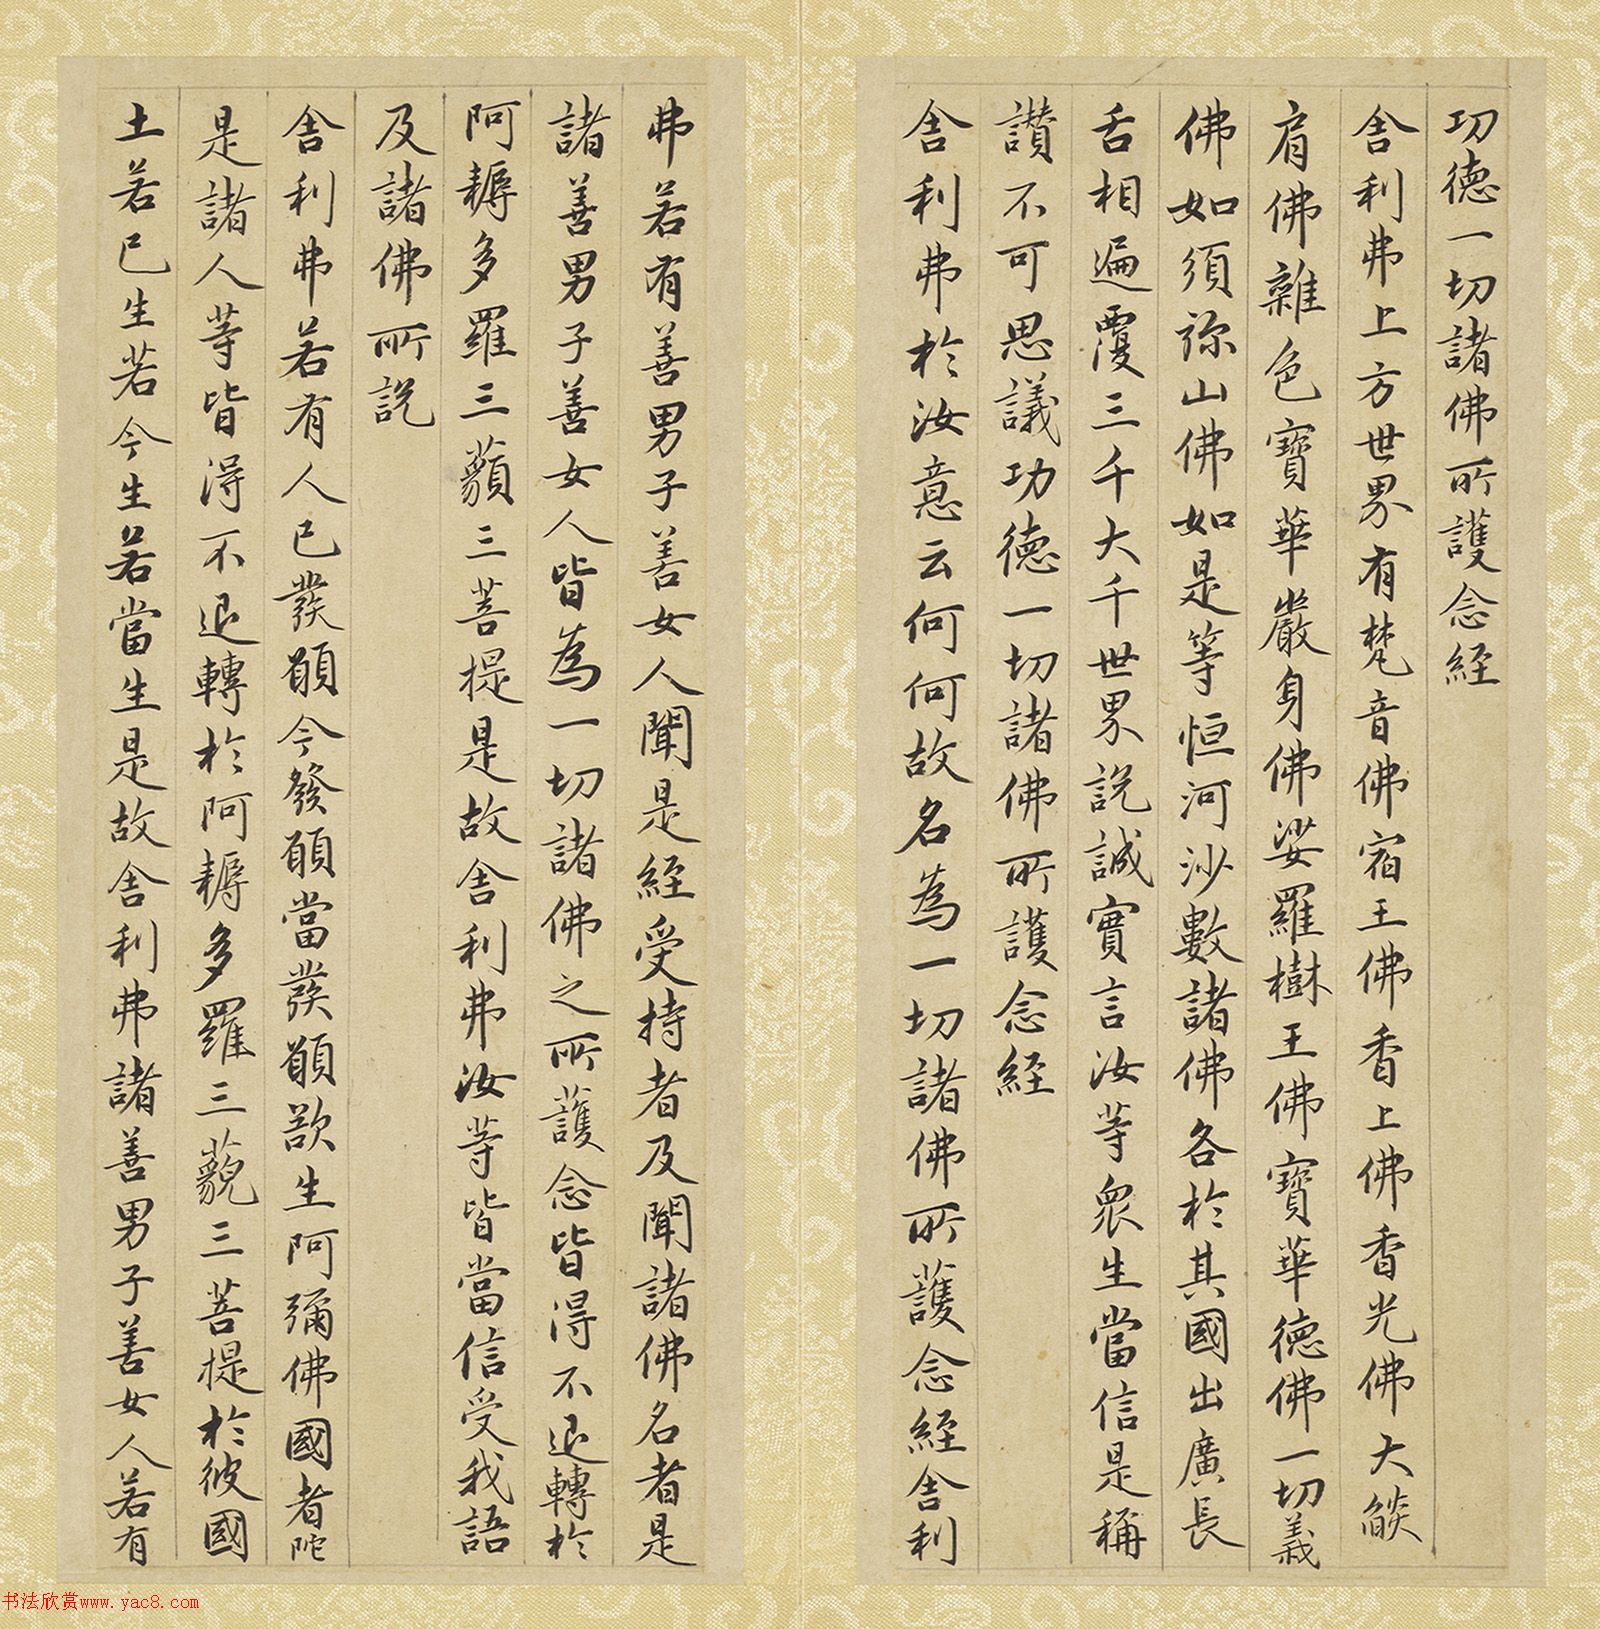 功德一切諸佛所護念經
舍利弗上方世界有梵音佛宿王佛香上佛香光佛大燄
肩佛雜色寶華嚴身佛娑羅樹王佛寶華德佛一切義
佛如須弥山佛如是等恒河沙數諸佛各於其國出廣長
舌相遍覆三千大千世界說誠實言汝等眾生當信是稱
讃不可思議功德一切諸佛所護念經
舍利弗於汝意云何何故名為一切諸佛所護念經舍利
弗若有善男子善女人聞是經受持者及聞諸佛名者是
諸善男子善女人皆為一切諸佛之所護念皆得不退轉於
阿耨多羅三藐三菩提是故舍利弗汝等皆當信受我語
及諸佛所說
舍利弗若有人已發願今發願當發願欲生阿彌佛國者陀
是諸人等皆得不退轉於阿耨多羅三藐三菩提於彼國
土若已生若今生若當生是故舍利弗諸善男子善女人若有
书法欣赏www.yac8.com